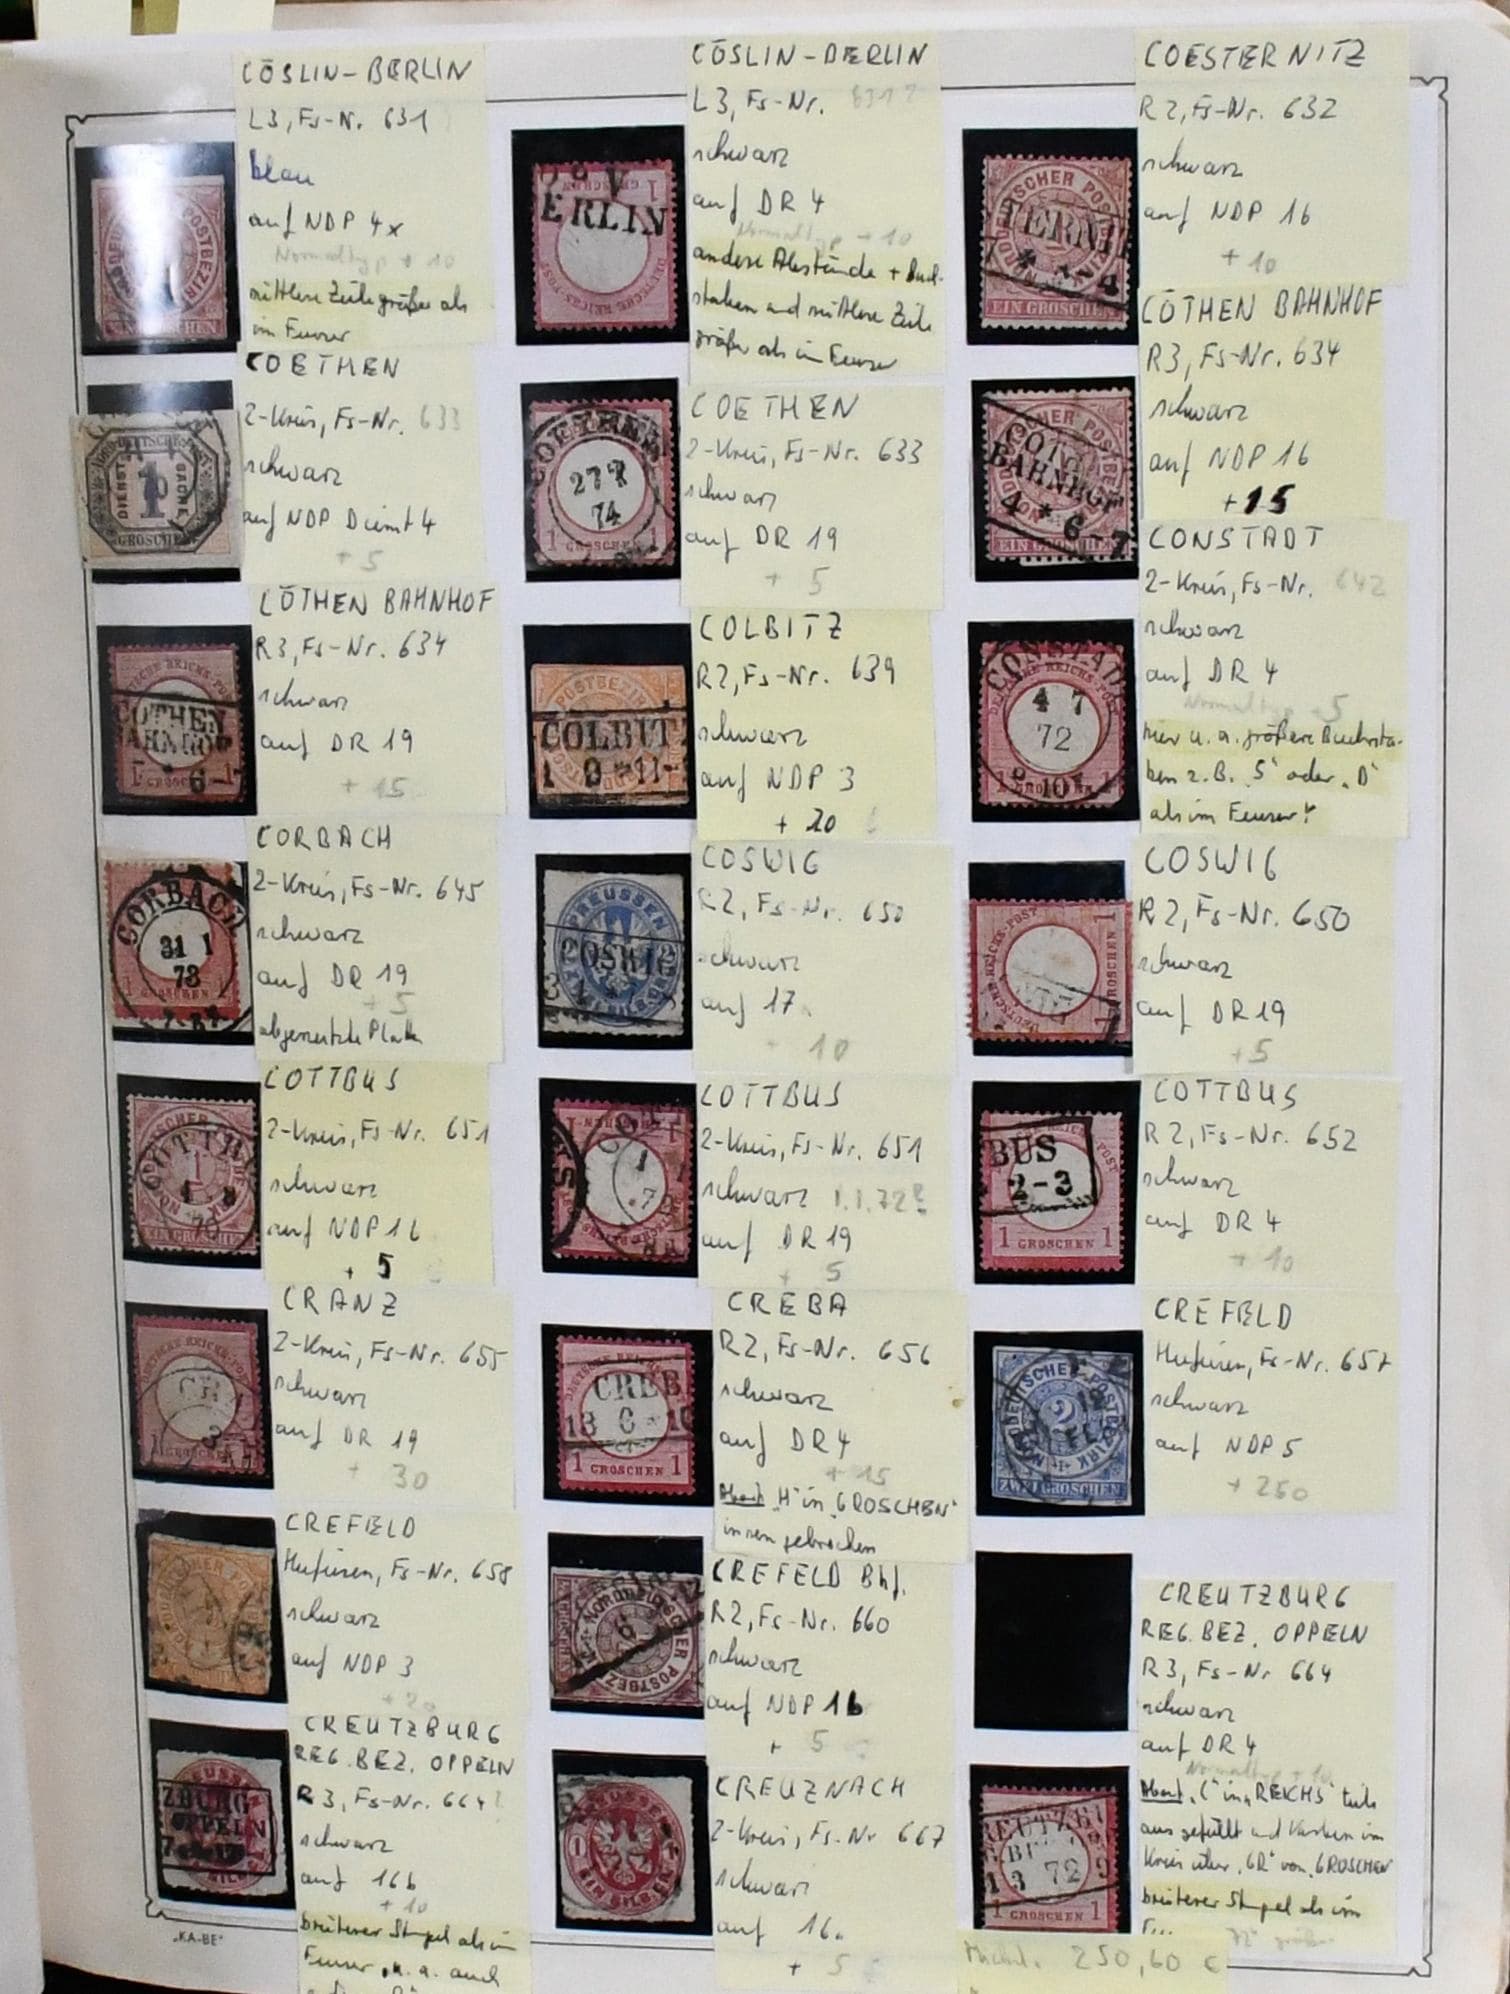 CÖSLIN-BERLIN
L3, Fs-Nr. 631
blau
auf NDP 4x
Normaltyp + 10
mittlere Zeile größer als
im Feuser
CÖSLIN-BERLIN
L3, Fs-Nr. 631?
schwarz
auf DR 4
Normaltyp + 10
andere Abstände + Buch-
staben und mittlere Zeile
größer als im Feuser
COESTERNITZ
R2, Fs-Nr. 632
schwarz
auf NDP 16
+ 10
COETHEN
2-Kreis, Fs-Nr. 633
schwarz
auf NDP Dienst 4
+ 5
COETHEN
2-Kreis, Fs-Nr. 633
schwarz
auf DR 19
+ 5
CÖTHEN BAHNHOF
R3, Fs-Nr. 634
schwarz
auf NDP 16
+ 15
CÖTHEN BAHNHOF
R3, Fs-Nr. 634
schwarz
auf DR 19
+ 15
COLBITZ
R2, Fs-Nr. 639
schwarz
auf NDP 3
+ 20
CONSTADT
2-Kreis, Fs-Nr. 642
schwarz
auf DR 4
Normaltyp 5
hier u. a. größere Buchsta-
ben z. B. "S" oder "D"
als im Feuser!
CORBACH
2-Kreis, Fs-Nr. 645
schwarz
auf DR 19
+ 5
abgenutzte Platte
COSWIG
R2, Fs-Nr. 650
schwarz
auf 17
+ 10
COSWIG
R2, Fs-Nr. 650
schwarz
auf DR 19
+ 5
COTTBUS
2-Kreis, Fs-Nr. 651
schwarz
auf NDP 16
+ 5
COTTBUS
2-Kreis, Fs-Nr. 651
schwarz 1.1.72?
auf DR 19
+ 5
COTTBUS
R2, Fs-Nr. 652
schwarz
auf DR 4
+ 10
CRANZ
2-Kreis, Fs-Nr. 655
schwarz
auf DR 19
+ 30
CREBA
R2, Fs-Nr. 656
schwarz
auf DR 4
+ 15
Abart "H" in "GROSCHEN"
innen gebrochen
CREFELD
Hufeisen, Fs-Nr. 657
schwarz
auf NDP 5
+ 250
CREFELD
Hufeisen, Fs-Nr. 658
schwarz
auf NDP 3
+ 20
CREFELD Bhf.
R2, Fs-Nr. 660
schwarz
auf NDP 16
+ 5
CREUTZBURG
REG. BEZ. OPPELN
R3, Fs-Nr 664
schwarz
auf DR 4
Normaltyp + 10
Abart "C" in "REICHS" teils
ausgefüllt und Kerben im
Kreis über "GR" von "GROSCHEN"
breiterer Stempel als im
CREUTZBURG
REG. BEZ. OPPELN
R3, Fs-Nr. 664
schwarz
auf 16b
+ 10
breiterer Stempel als im
Feuser, u. a. auch
CREUZNACH
2-Kreis, Fs-Nr 667
schwarz
auf 16
+ 5
Michel. 250,60 €
"KA-BE"